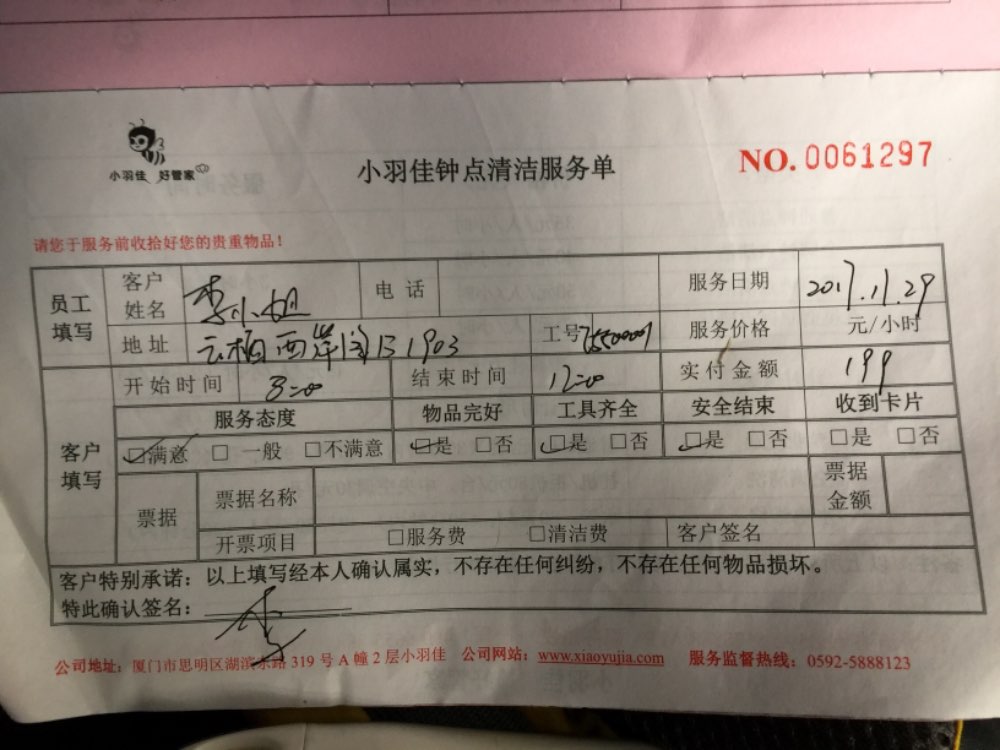 小羽佳 好管家
小羽佳钟点清洁服务单
NO. 0061297
请您于服务前收拾好您的贵重物品！
员工填写 客户姓名 李小姐 电话 服务日期 2017.11.29
地址 云柏西岸 B 1903 工号 服务价格 元/小时
客户填写 开始时间 8:00 结束时间 12:00 实付金额 199
服务态度 物品完好 工具齐全 安全结束 收到卡片
☑满意 □ 一般 □不满意 ☑是 □否 ☑是 □否 ☑是 □否 □是 □否
票据 票据名称 票据金额
开票项目 □服务费 □清洁费 客户签名
客户特别承诺：以上填写经本人确认属实，不存在任何纠纷，不存在任何物品损坏。
特此确认签名： 李
公司地址：厦门市思明区湖滨东路 319 号 A 幢 2 层小羽佳 公司网站：www.xiaoyujia.com 服务监督热线：0592-5888123